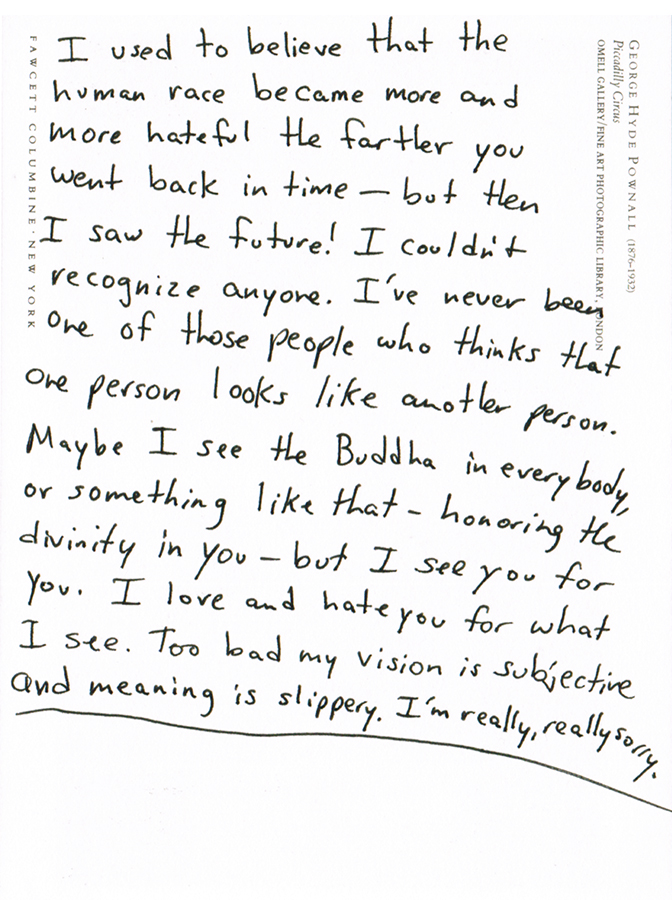 I used to believe that the
human race became more and
more hateful the farther you
went back in time – but then
I saw the future! I couldn't
recognize anyone. I've never been
one of those people who thinks that
one person looks like another person.
Maybe I see the Buddha in everybody,
or something like that – honoring the
divinity in you – but I see you for
you. I love and hate you for what
I see. Too bad my vision is subjective
and meaning is slippery. I'm really, really sorry.
FAWCETT COLUMBINE · NEW YORK
GEORGE HYDE POWNALL (1876–1932)
Piccadilly Circus
OMELL GALLERY/FINE ART PHOTOGRAPHIC LIBRARY, LONDON